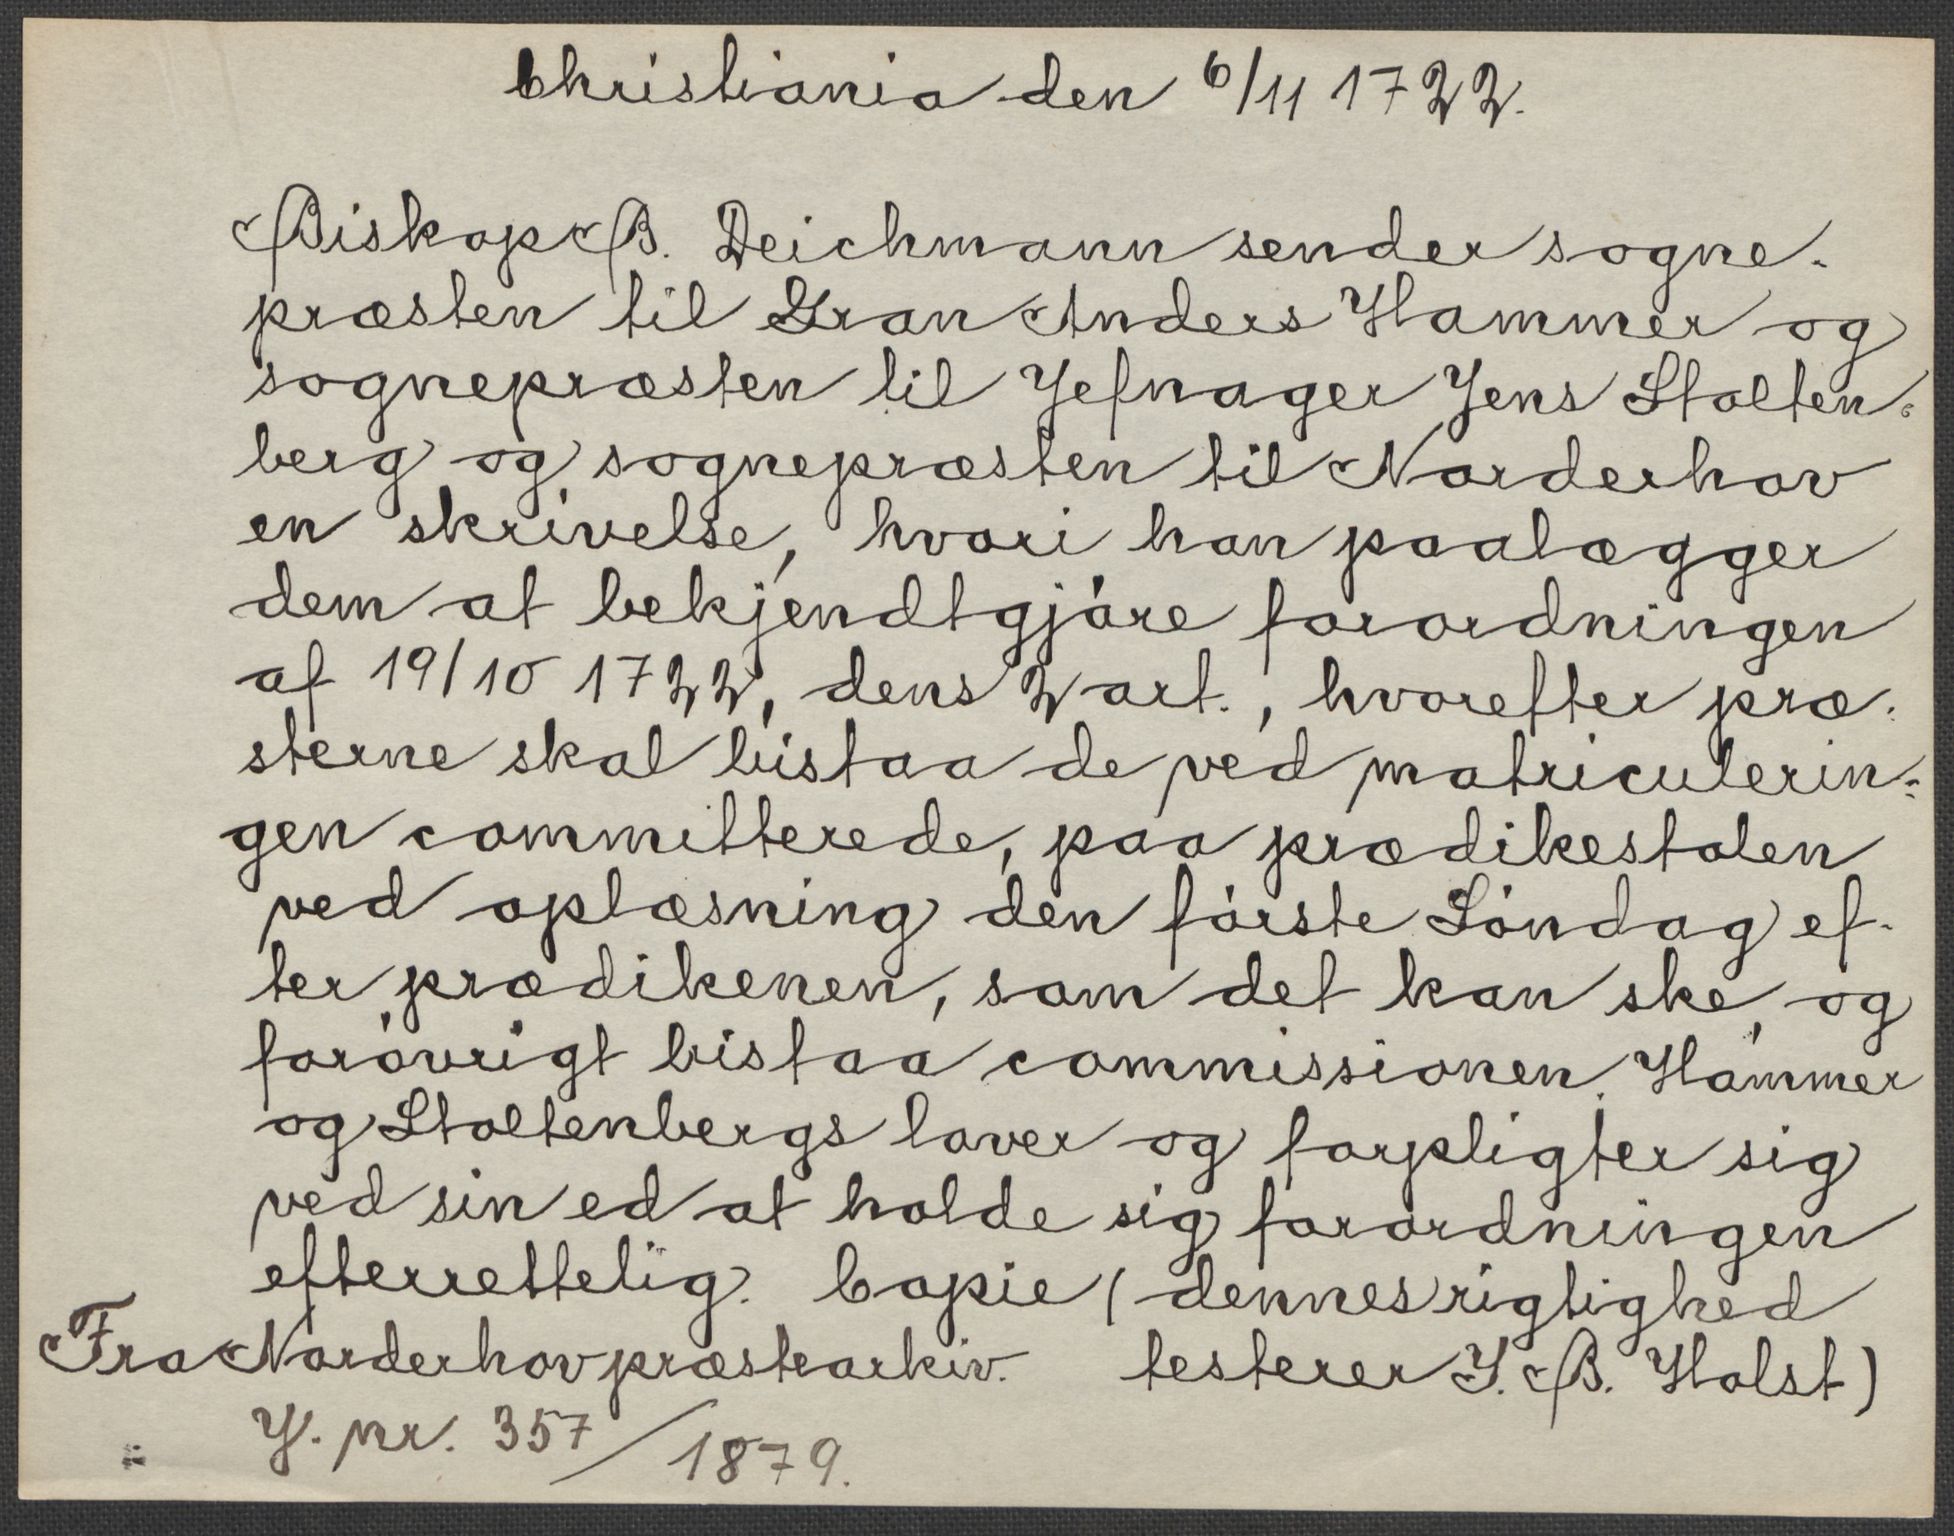 Christiania den 6/11 1722.
Biskop B. Deichmann sender sogne-
præsten til Gran Anders Hammer og
sognepræsten til Jefnager Jens Stolten-
berg og sognepræsten til Norderhov
en skrivelse, hvori han paalægger
dem at bekjendtgjóre forordningen
af 19/10 1722, dens 2 art., hvorefter præ-
sterne skal bistaa de ved matriculerin-
gen committerede, paa prædikestolen
ved oplæsning den fórste Sóndag ef-
ter prædikenen, som det kan ske, og
foróvrigt bistaa commissionen. Hammer
og Stoltenbergs lover og forpligter sig
ved sin ed at holde sig forordningen
efterrettelig. Copie (dennes rigtighed
Fra Norderhov præstearkiv. testerer J. B. Holst)
J. nr. 357/1879.